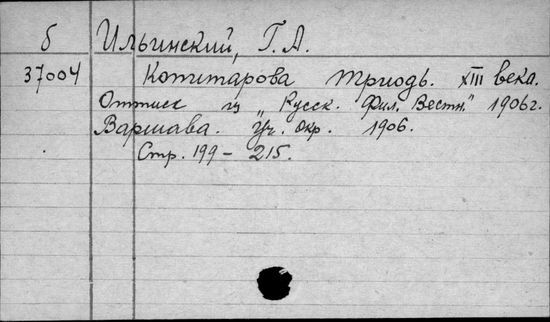 б Ильинский, Г. А.
37004 Копитарова триодь. XIII века.
Оттиск из „Русск. Фил. Вестн." 1906г.
Варшава. Уч. Окр. 1906.
Стр. 199 – 215.